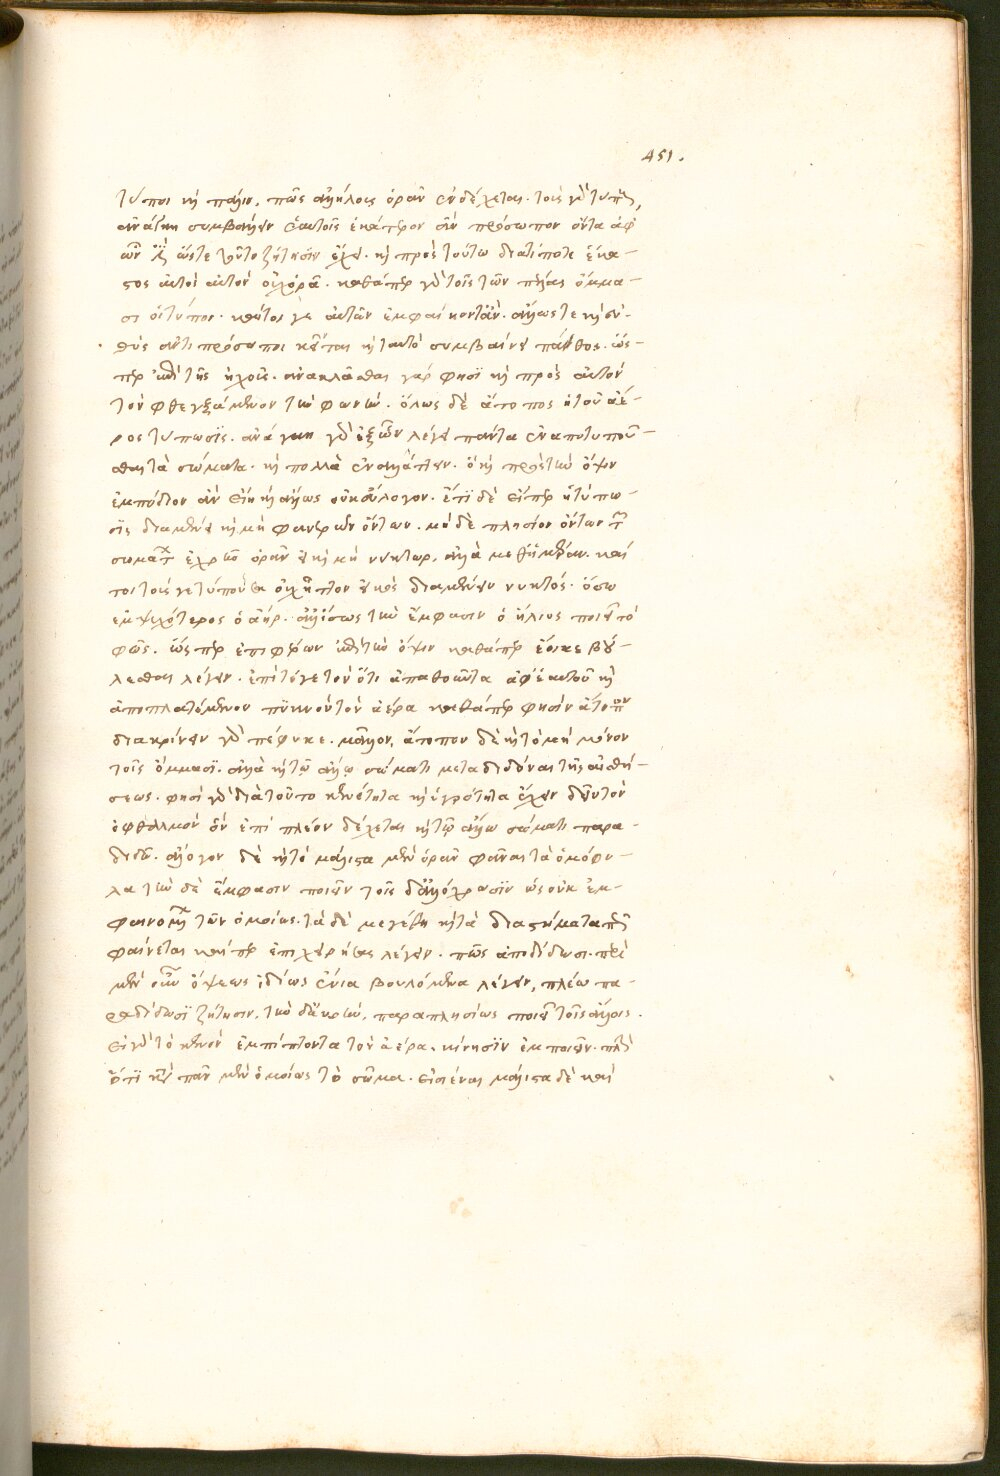 451.
τύποι καὶ πάλιν. πῶς ἀλλήλοις ὁρᾶν ἐνδέχεται. τοὺς γὰρ τύπους
ἀνάγκη συμβάλλειν ἑαυτοῖς ἑκάτερον ἀν πρόσωπον ὄντα ἀφ
ὧν ὥστε τοῦτο ζήτησιν ἔχει. καὶ πρὸς τούτω διατίποτε ἕκα-
στος αὐτὸς αὐτὸν οὐχ ὁρᾶ. καθάπερ γὰρ τοῖς τῶν πέλας ὄμμα-
σι οἱ τύποι. καὶ τοῖς γε αὐτῶν ἐμφαίνονται ἂν. ἄλλως τε καὶ εὐ-
θὺς ἀντιπρόσωποι κεῖνται καὶ ταυτὸ συμβαίνει πάθος. ὥσ-
περ ἐπὶ τῆς ἠχοῦς. ἀνακλᾶσθαι γάρ φησι καὶ πρὸς αὐτὸν
τὸν φθεγξάμενον τὴν φωνήν. ὅλως δὲ ἄτοπος ἡ τοῦ ἀέ-
ρος τύπωσις. ἀνάγκη γὰρ ἐξ ὧν λέγει πάντα ἐναποτυποῦ-
σθαι τὰ σώματα. καὶ πολλὰ ἐναλλάττειν. ὃ καὶ πρὸς τὴν ὄψιν
ἐμπόδιον ἂν εἴη καὶ ἄλλως οὐκ εὔλογον. ἔτι δὲ εἴπερ ἡ τύπω-
σις διαμένει καὶ μὴ φανερῶν ὄντων. μηδὲ πλησίον ὄντων τῶν
σωμάτων ἐχρῆν ὁρᾶν εἰ καὶ μὴ νύκτωρ. ἀλλὰ μεθ᾽ ἡμέραν. καί
τοι τούς γε τύπους οὐχ ἧττον εἰκὸς διαμένειν νυκτός. ὅσω
ἐμψυχότερος ὁ ἀήρ. ἀλλ᾽ ἴσως τὴν ἔμφασιν ὁ ἥλιος ποιεῖ τὸ
φῶς. ὥσπερ ἐπιφέρων ἐπὶ τὴν ὄψιν καθάπερ ἔοικε βού-
λεσθαι λέγειν. ἐπὶ τόγε τὸν ὅτι ἀπαθοῦντα ἀφ᾽ ἑαυτοῦ καὶ
ἀποπλατόμενον πυκνοῦν τὸν ἀέρα καθάπερ φησὶν ἄτοπον
διακρίνειν γὰρ πέφυκε. μᾶλλον. ἄτοπον δὲ καὶ τὸ μὴ μόνον
τοῖς ὄμμασι. ἀλλὰ καὶ τῶ ἄλλῳ σώματι μεταδιδόναι τῆς αἰσθή-
σεως. φησὶ γὰρ διὰ τοῦτο κενότητα καὶ ὑγρότητα ἔχειν δεῖν τὸν
ὀφθαλμὸν ἵν᾽ ἐπὶ πλέον δέχεται καὶ τῶ ἄλλω σώματι παρα-
διδῶ. ἄλογον δὲ καὶ τὸ μάλιστα μὲν ὁρᾶν φᾶναι τὰ ὁμόφυ-
λα τὴν δὲ ἔμφασιν ποιεῖν τοῖς δ᾽ ἀλλόχρωσιν ὡς οὐκ ἐμ-
φαινομένων τῶν ὁμοίων. τὰ δὲ μεγέθη καὶ τὰ διαστήματα πῶς
φαίνεται καίπερ ἐπιχειρήσας λέγειν. πῶς ἀποδίδωσι. περὶ
μὲν οὖν ὄψεως ἰδίως ἔνια βουλόμενα λέγειν, πλέω πα-
ραδίδωσι ζήτησιν. τὴν δ᾽ ἀκοὴν. παραπλησίως ποιεῖ τοῖς ἄλλοις.
εἰς γὰρ τὸ κενὸν ἐμπίπτοντα τὸν ἀέρα. κίνησιν ἐμποιεῖν. πλὴν
ὅτι κατὰ πᾶν μὲν ὁμοίως τὸ σῶμα. εἰσιέναι μάλιστα δὲ καὶ